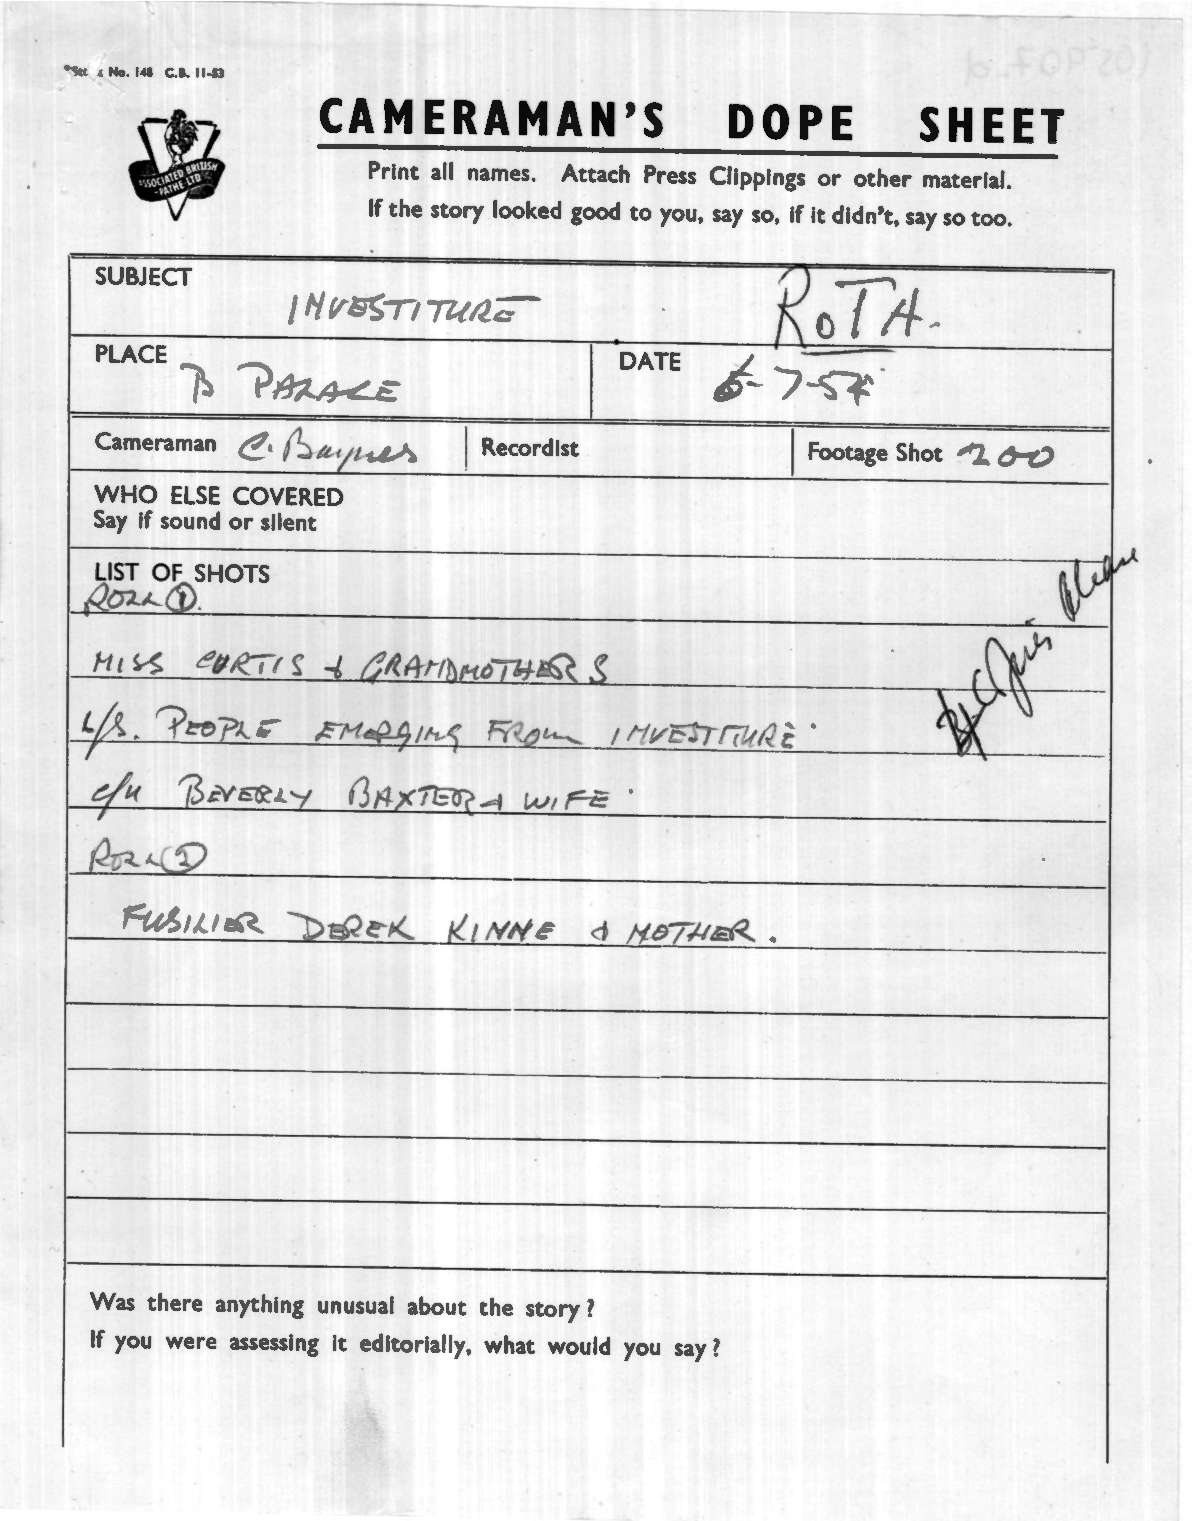 No. 148 C.B. 11-53
CAMERAMAN'S DOPE SHEET
ASSOCIATED BRITISH
-PATHE LTD-
Print all names. Attach Press Clippings or other material.
If the story looked good to you, say so, if it didn't, say so too.
SUBJECT
INVESTITURE
ROTA.
PLACE
B PALACE
DATE
6-7-54
Cameraman C. Baynes
Recordist
Footage Shot 200
WHO ELSE COVERED
Say if sound or silent
LIST OF SHOTS
ROLL 1.
Please
MISS CURTIS & GRANDMOTHERS
L/S. PEOPLE EMERGING FROM INVESTITURE
C/U BEVERLY BAXTER & WIFE
ROLL 2
FUSILIER DEREK KINNE & MOTHER.
Was there anything unusual about the story?
If you were assessing it editorially, what would you say?